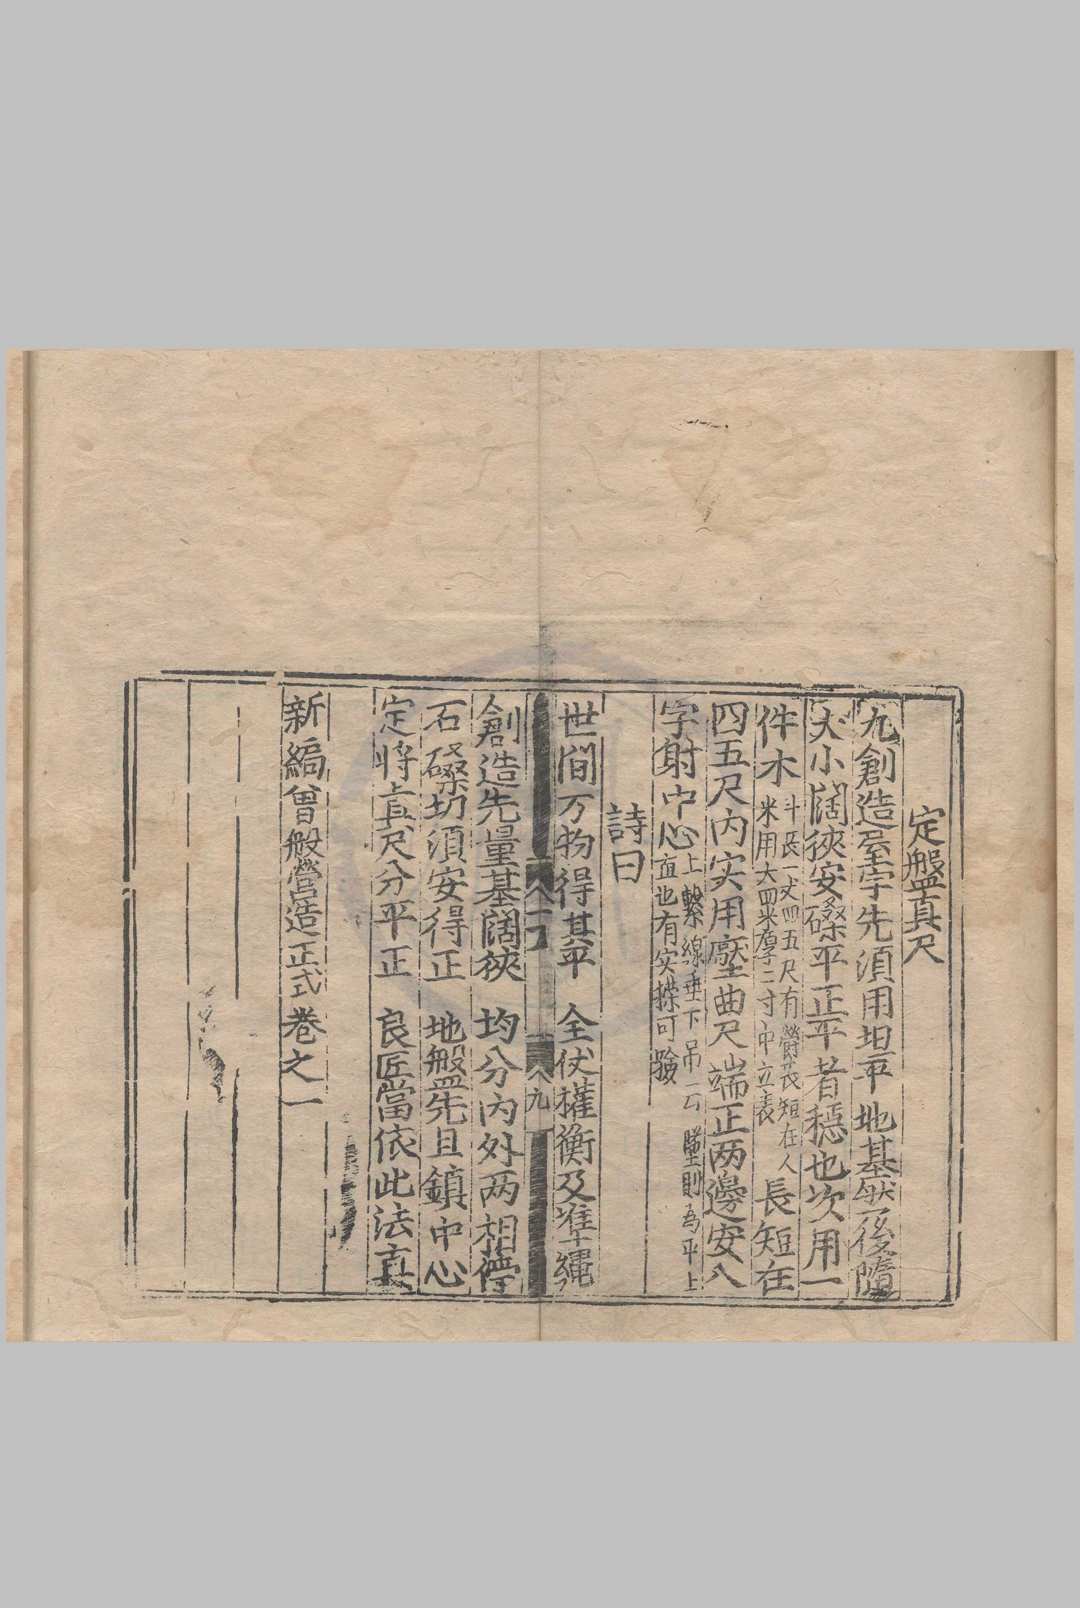 定盤真尺
凡創造屋宇先須用坦平地基然後隨
大小闊狹安磉平正平者穩也次用一
件木 斗長一丈四五尺有實長短在人 長短在
米用大四寸厚二寸中立表
四五尺內实用壓曲尺端正两邊安八
字射中心 上繫線垂下吊一石墜則為平
直也有实㨾可驗
詩曰
世間万物得其平 全仗權衡及準繩
創造先量基闊狹 均分內外两相停
石磉切須安得正 地盤先且鎮中心
定將真尺分平正 良匠當依此法真
新編魯般營造正式卷之一
八
九